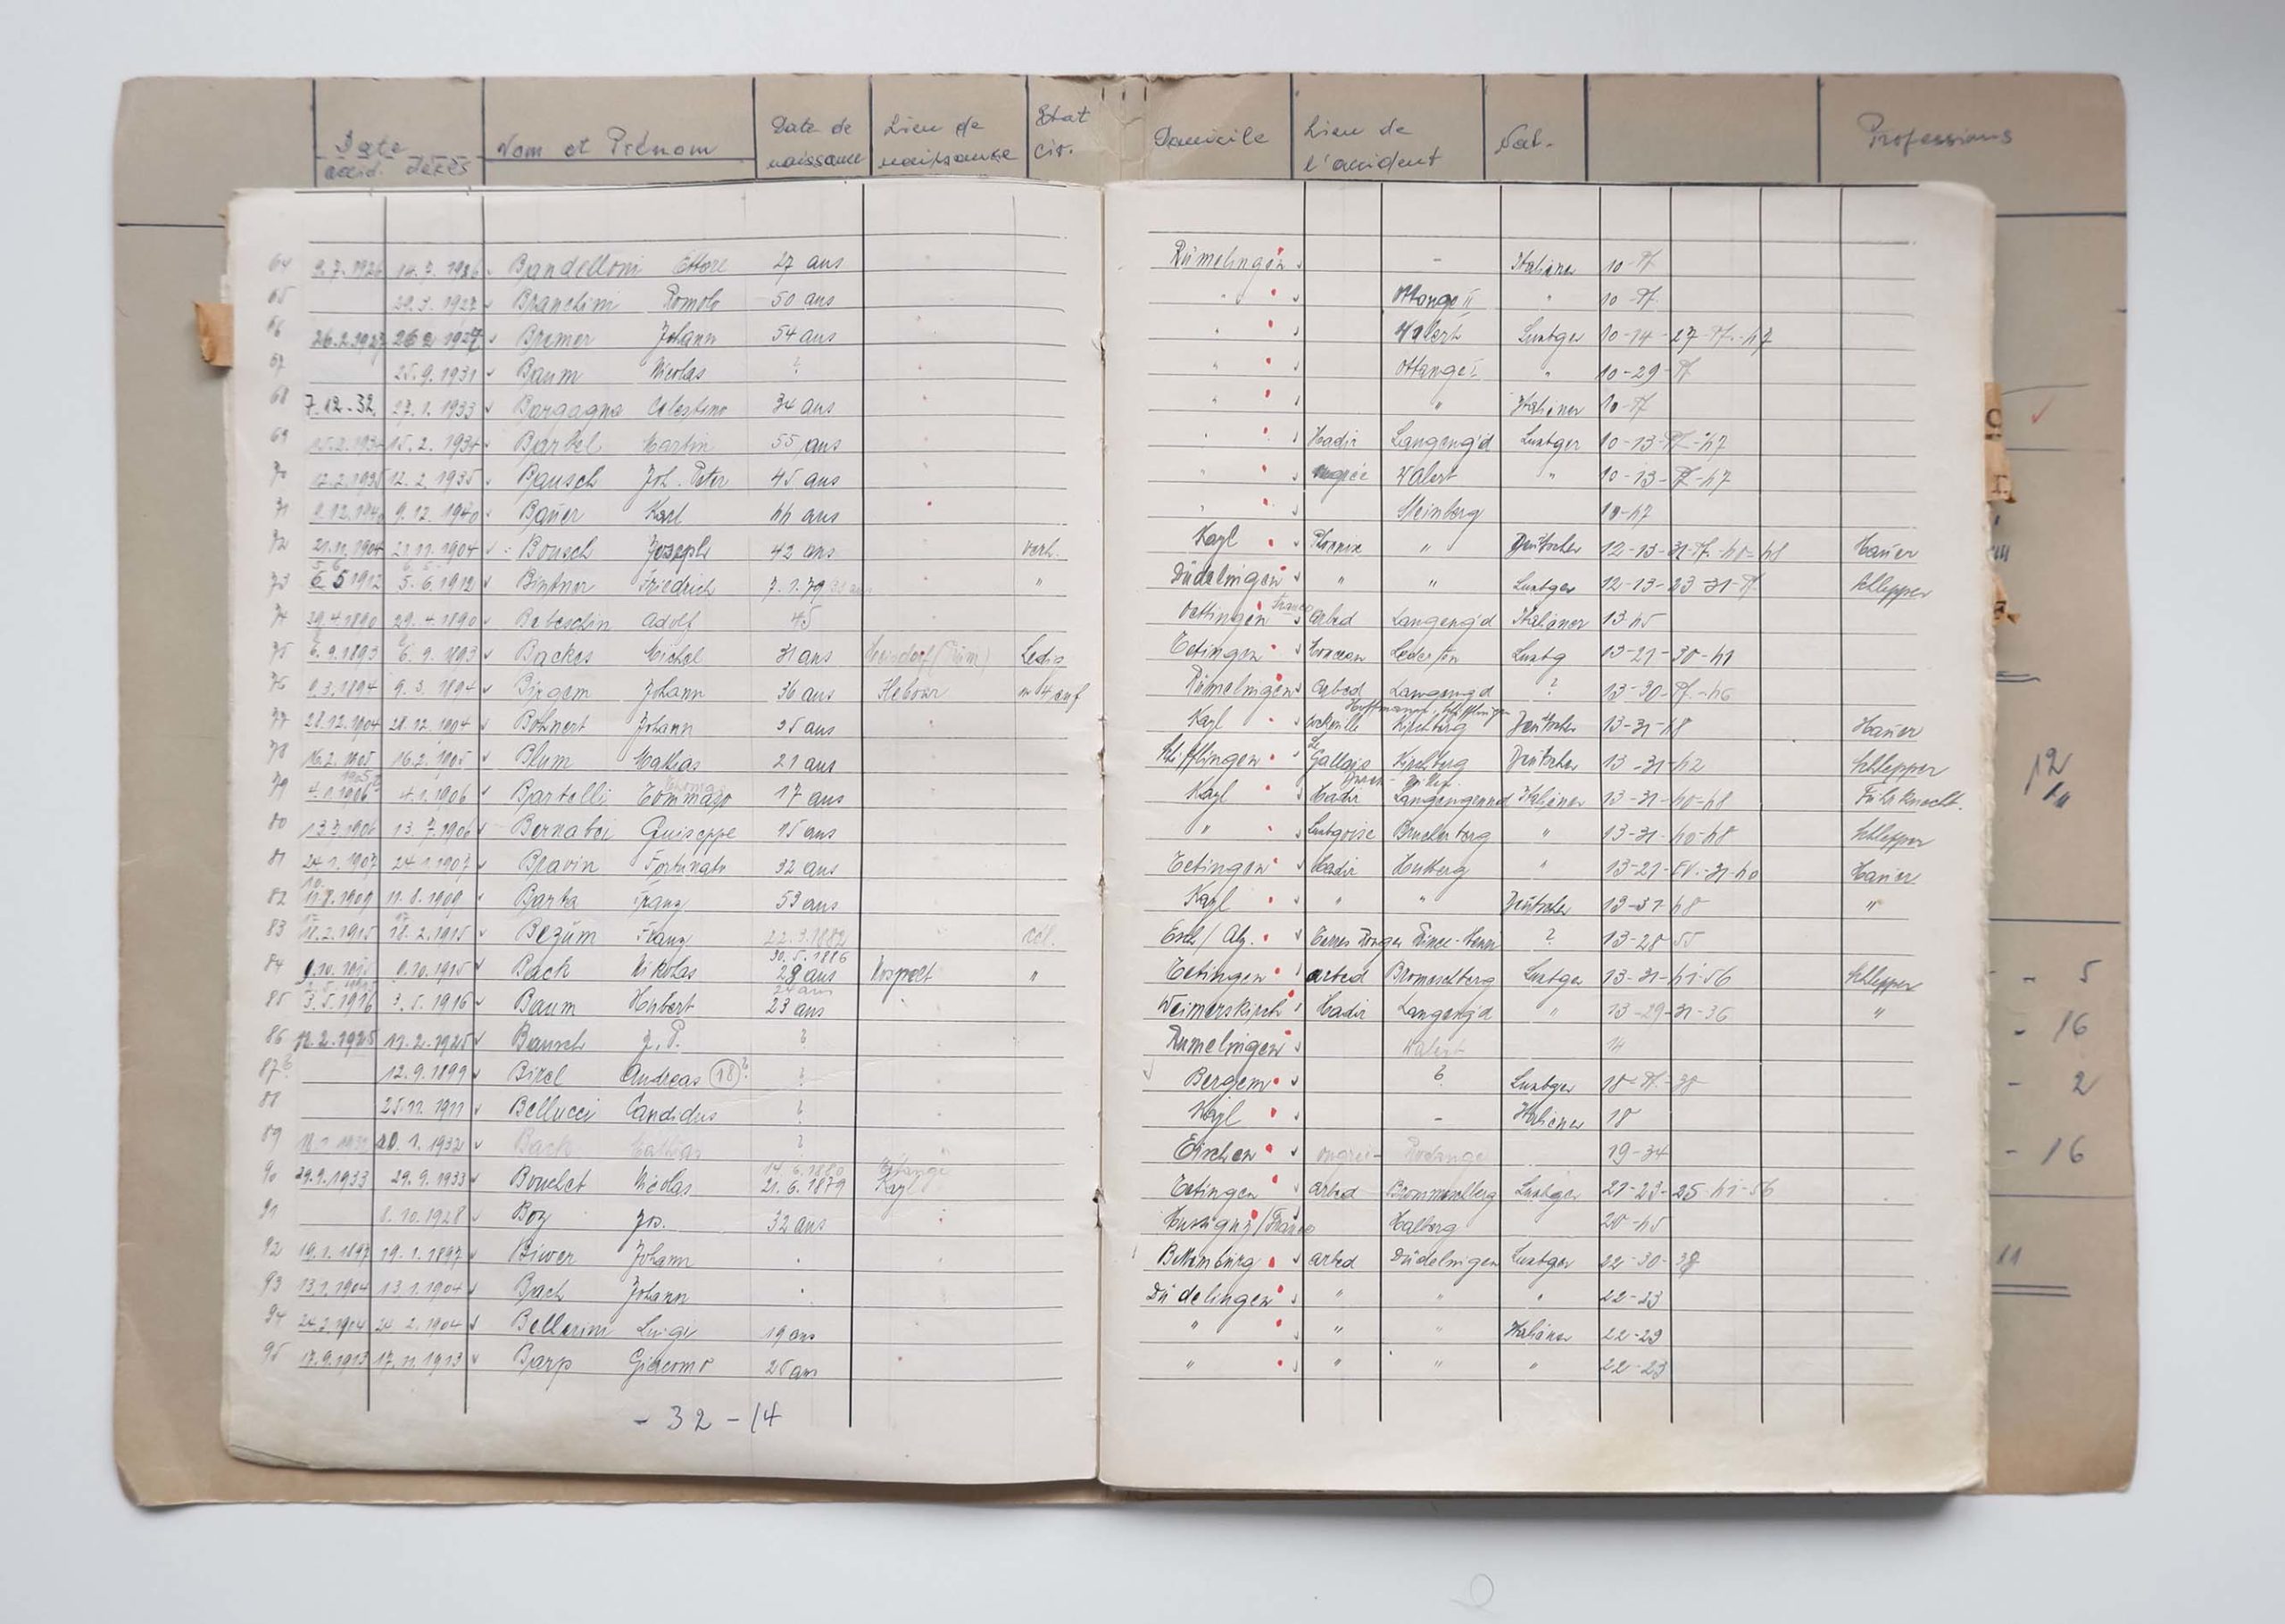 Date Nom et Prénom Date de Lieu de Etat Domicile Lieu de Nat. Professions
accid. décès naissance naissance civ. l'accident
64 9.7.1926 14.7.1926 Bandelloni Ettore 27 ans Rümelingen - Italiener 10
65 29.3.1927 Branchini Romolo 50 ans " Ottange II " 10
66 26.2.1927 26 2 1927 Bremer Johann 54 ans " Walert Luxbger 10-14-27 -47
67 25.9.1931 Baum Nicolas ? " Ottange I " 10-29
68 7.12.32 27.1.1933 Bargagna Celestino 34 ans " " Italiener 10
69 15.2.1934 15.2.1934 Barbel Martin 55 ans " Hadir Langeng'd Luxbger 10-13 -47
70 12.2.1935 12.2.1935 Bausch Joh. Peter 45 ans " Walert " 10-13 -47
71 9.12.1940 9.12.1940 Bauer Karl 44 ans " Steinberg 10-47
72 21.11.1904 21.11.1904 Bousch Joseph 42 ans verh. Kayl Phönix " Deutscher 12-13-31 Hauer
73 6 5 1912 5.6.1912 Bintner Friedrich 7.1.79 " Düdelingen " " Luxbger 12-13-23-31 Schlepper
74 29.4.1890 29.4.1890 Beteschin Adolf 45 Oettingen France Arbed Langeng'd Italiener 13-45
75 6.9.1893 6.9.1893 Backes Michel 31 ans Ledig Tetingen Luxbg 13-21-30-41
76 9.3.1894 9.3.1894 Birgem Johann 36 ans Rümelingen Arbed Langengd ? 13-30 -46
77 28.12.1904 28.12.1904 Bohnert Johann 35 ans Kayl Kirchberg Deutscher 13-31-48 Hauer
78 16.2.1905 16.2.1905 Blum Mathias 21 ans Schifflingen Le Gallais Kirchberg Deutscher 13-31-42 Schlepper
79 4.1.1906 4.1.1906 Bartelli Tommaso 17 ans Kayl Hadir Langengrund Italiener 13-31-40-48 Fuhrknecht
80 13.7.1906 13.7.1906 Bernabei Guiseppe 15 ans " Brucherberg " 13-31-40-48 Schlepper
81 24.1.1907 24.1.1907 Bravin Fortunato 32 ans Tetingen Hadir Hutberg " 13-21 -31-40 Hauer
82 11.8.1909 11.8.1909 Barta Franz 53 ans Kayl " " Deutscher 13-31-48 "
83 18.2.1915 18.2.1915 Bezum Franz 22.3.1882 cél. Esch/Alz. Terres Rouges Prince-Henri ? 13-28-55
30.5.1886
84 9.10.1915 9.10.1915 Back Nikolas 28 ans Nospelt " Tetingen Arbed Brommeschberg Luxbger 13-31-41-56 Schlepper
24 ans
85 3.5.1916 3.5.1916 Baum Hubert 23 ans Weimerskirch Hadir Langeng'd " 13-29-31-36 "
86 11.2.1925 11.2.1925 Bausch J.P. ? Rumelingen Walert 14
87? 12.9.1899 Birel Andreas 18? ? Bergem ? Luxbger 18 -38
88 25.11.1911 Bellucci Candidus ? Kayl - Italiener 18
89 20.1.1932 Back Mathias ? Eischen Ougrée- Rodange 19-34
14.6.1880
90 29.9.1933 29.9.1933 Bouchet Nicolas 21.6.1879 Kayl Tetingen Arbed Brommeschberg Luxbger 21-23-25-41-56
91 8.10.1928 Boy Jos. 32 ans Hussigny/France Halberg 20-45
92 19.1.1897 19.1.1897 Biwer Johann Bettemburg Arbed Düdelingen Luxbger 22-30-38
93 13.1.1904 13.1.1904 Bach Johann Düdelingen " " " 22-23
94 24.2.1904 24 2.1904 Bellerini Luigi 19 ans " " " Italiener 22-23
95 17.9.1913 17.11.1913 Barp Giacomo 26 ans " " " " 22-23
- 32 - 14
12
- 5
- 16
- 2
- 16
11